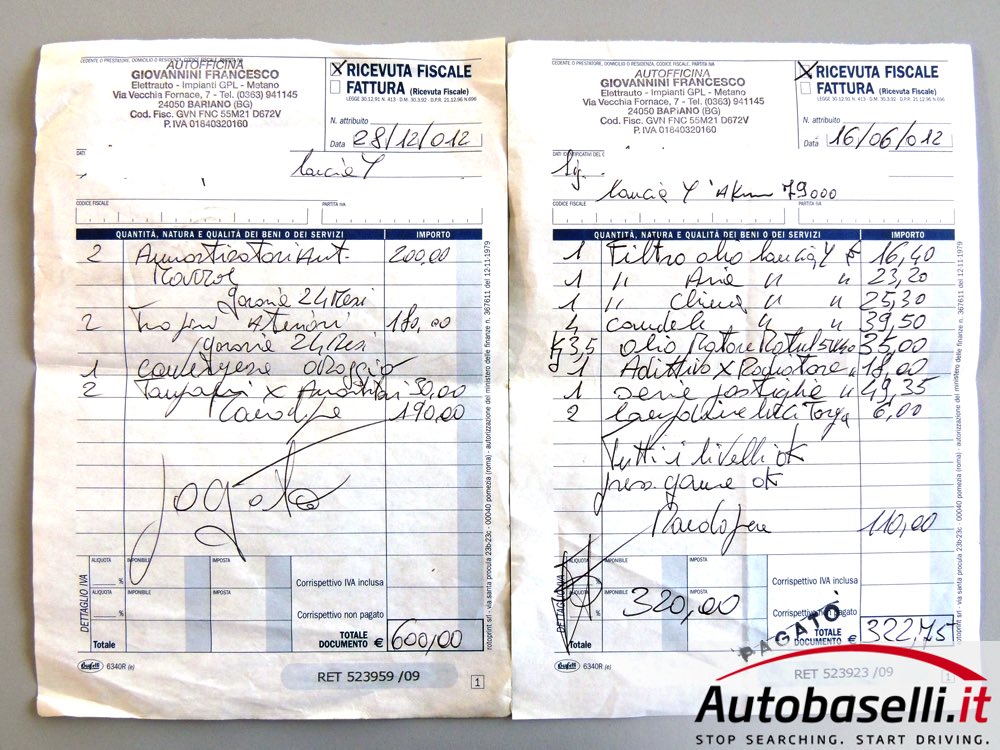 CEDENTE O PRESTATORE, DOMICILIO O RESIDENZA, CODICE FISCALE, PARTITA IVA
AUTOFFICINA
GIOVANNINI FRANCESCO
Elettrauto - Impianti GPL - Metano
Via Vecchia Fornace, 7 - Tel. (0363) 941145
24050 BARIANO (BG)
Cod. Fisc. GVN FNC 55M21 D672V
P. IVA 01840320160
X RICEVUTA FISCALE
FATTURA (Ricevuta Fiscale)
LEGGE 30.12.91 N. 413 - D.M. 30.3.92 - D.P.R. 21.12.96 N.696
N. attribuito
Data 28/12/012
DATI
Lancia Y
CODICE FISCALE
PARTITA IVA
QUANTITÀ, NATURA E QUALITÀ DEI BENI O DEI SERVIZI IMPORTO
2 Ammortizzatori Ant. 200,00
24 Mesi
2 180,00
24 Mesi
1
2 x 30,00
190,00
Pagato
DETTAGLIO IVA
ALIQUOTA IMPONIBILE IMPOSTA
%
Corrispettivo IVA inclusa
ALIQUOTA IMPONIBILE IMPOSTA
%
Corrispettivo non pagato
Totale
TOTALE DOCUMENTO € 600,00
Buffetti 6340R (e)
RET 523959 /09
1
rotoprint srl - via santa procula 23b-23c - 00040 pomezia (roma) - autorizzazione del ministero delle finanze n. 367611 del 12-11-1979
CEDENTE O PRESTATORE, DOMICILIO O RESIDENZA, CODICE FISCALE, PARTITA IVA
AUTOFFICINA
GIOVANNINI FRANCESCO
Elettrauto - Impianti GPL - Metano
Via Vecchia Fornace, 7 - Tel. (0363) 941145
24050 BARIANO (BG)
Cod. Fisc. GVN FNC 55M21 D672V
P. IVA 01840320160
X RICEVUTA FISCALE
FATTURA (Ricevuta Fiscale)
LEGGE 30.12.91 N. 413 - D.M. 30.3.92 - D.P.R. 21.12.96 N.696
N. attribuito
Data 16/06/012
DATI IDENTIFICATIVI DEL C
Sig.
Lancia Y Km 79000
CODICE FISCALE
PARTITA IVA
QUANTITÀ, NATURA E QUALITÀ DEI BENI O DEI SERVIZI IMPORTO
1 Filtro olio Lancia Y 16,40
1 " Aria " " 23,20
1 " Clima " " 25,30
4 candele " " 39,50
Kg 3,5 olio Motore Motul 5W40 35,00
1 Additivo x 18,00
1 serie pastiglie " 49,35
2 6,00
Tutti i livelli ok
press. gomme ok
Manodopera 110,00
DETTAGLIO IVA
ALIQUOTA IMPONIBILE IMPOSTA
%
Corrispettivo IVA inclusa
ALIQUOTA IMPONIBILE IMPOSTA
%
320,00
Corrispettivo non pagato
PAGATO
Totale
TOTALE DOCUMENTO € 322,75
Buffetti 6340R (e)
RET 523923 /09
1
rotoprint srl - via santa procula 23b-23c - 00040 pomezia (roma) - autorizzazione del ministero delle finanze n. 367611 del 12-11-1979
Autobaselli.it
STOP SEARCHING. START DRIVING.